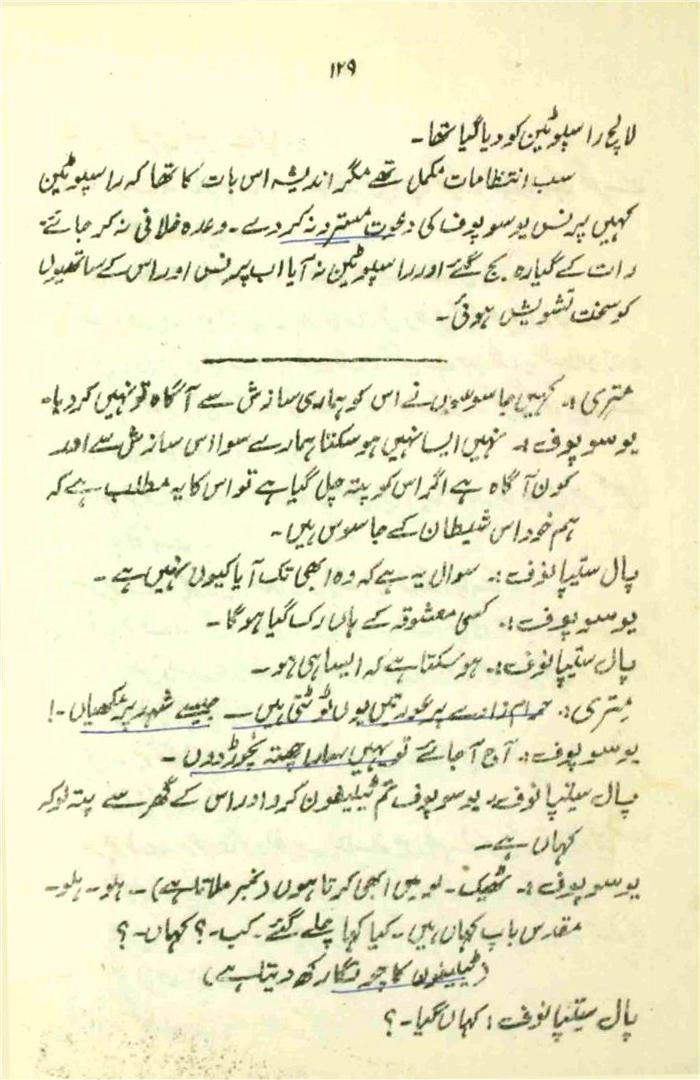 ۱۲۹
لالچ راسپوٹین کو دیا گیا تھا۔
سب انتظامات مکمل تھے مگر اندیشہ اس بات کا تھا کہ راسپوٹین
کہیں پرنس یوسوپوف کی دعوت مسترد نہ کر دے۔ وعدہ خلافی نہ کر جائے۔
رات کے گیارہ بج گئے اور راسپوٹین نہ آیا اب پرنس اور اس کے ساتھیوں
کو سخت تشویش ہوئی۔
متری :۔ کہیں جاسوسوں نے اس کو ہماری سازش سے آگاہ تو نہیں کر دیا۔
یوسوپوف :۔ نہیں ایسا نہیں ہو سکتا ہمارے سوا اس سازش سے اور
کون آگاہ ہے اگر اس کو پتہ چل گیا ہے تو اس کا یہ مطلب ہے کہ
ہم خود اس شیطان کے جاسوس ہیں۔
پال ستیپانوف :۔ سوال یہ ہے کہ وہ ابھی تک آیا کیوں نہیں ہے۔
یوسوپوف :۔ کسی معشوقہ کے ہاں رک گیا ہو گا۔
پال ستیپانوف :۔ ہو سکتا ہے کہ ایسا ہی ہو۔
متری :۔ حرام زادے پر عورتیں یوں ٹوٹتی ہیں ۔ جیسے شہد پر مکھیاں ۔!
یوسوپوف :۔ آج آ جائے تو یہیں سارا چھتہ نچوڑ دوں ۔
پال سیتپانوف ، یوسوپوف تم ٹیلیفون کرو اور اس کے گھر سے پتہ لو کہ
کہاں ہے۔
یوسوپوف :۔ ٹھیک ۔ لو میں ابھی کرتا ہوں (نمبر ملاتا ہے) ۔ ہلو۔ ہلو۔
مقدس باپ کہاں ہیں۔ کیا کہا چلے گئے۔ کب۔؟ کہاں۔؟
(ٹیلیفون کا چونگا رکھ دیتا ہے)
پال سیتپانوف : کہاں گیا۔؟